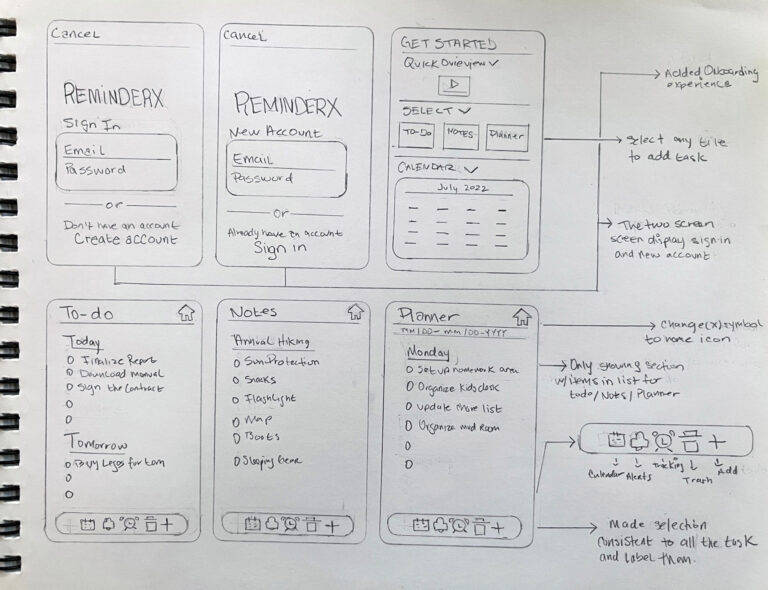 Cancel
REMINDERX
Sign In
Email
Password
or
Don't have an account
Create account
Cancel
REMINDERX
New Account
Email
Password
or
Already have an account
Sign in
GET STARTED
Quick Overview
SELECT
TO-DO
NOTES
Planner
CALENDAR
July 2022
Added Onboarding
experience
Select any tile
to add task
The two screen
screen display sign-in
and new account
To-do
Today
Finalize Report
Download manual
Sign the contract
Tomorrow
Buy Legos for tom
Notes
Annual Hiking
Sun-Protection
Snacks
Flashlight
Map
Boots
Sleeping Gear
Planner
MM/DD - MM/DD-YYYY
Monday
Set up homework area
Organize kids desk
update chore list
Organize mud room
Change (x) symbol
to home icon
Only showing section
w/items in list for
todo/Notes/Planner
Calendar
Alerts
Tracking
Trash
Add
Made selection
consistent to all the task
and label them.